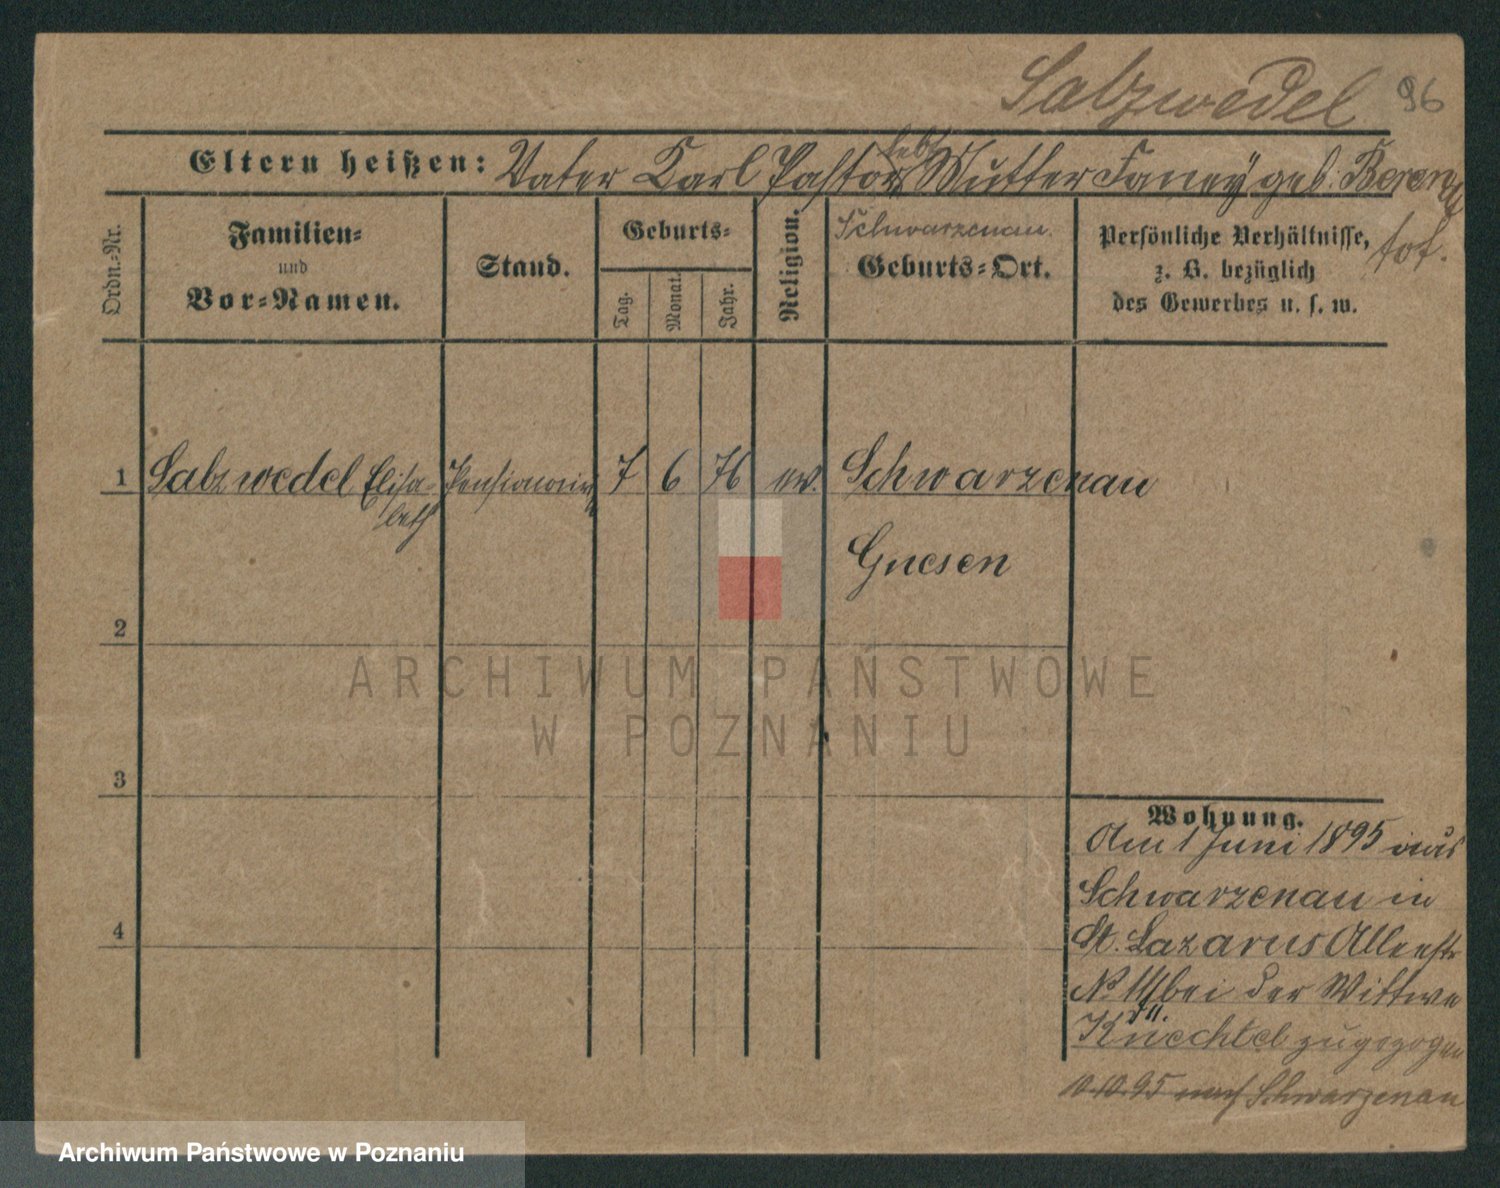 Salzwedel 96
Eltern heißen: Vater Karl Pastor lebt Mutter Fanny geb. Berend
tot.
Schwarzenau.
Ordn.-Nr.
Familien-
und
Vor-Namen.
Stand.
Geburts-
Tag.
Monat.
Jahr.
Religion.
Geburts-Ort.
Persönliche Verhältnisse,
z. B. bezüglich
des Gewerbes u. s. w.
1 Salzwedel Elisa- Pensionärin 7 6 76 ev. Schwarzenau
beth
Gnesen
2
ARCHIWUM PAŃSTWOWE
W POZNANIU
3
4
Wohnung.
Am 1 Juni 1895 aus
Schwarzenau in
St. Lazarus Allerstr
No bei der Wittwe
Knechtel zugezogen
10.10.95 nach Schwarzenau
Archiwum Państwowe w Poznaniu